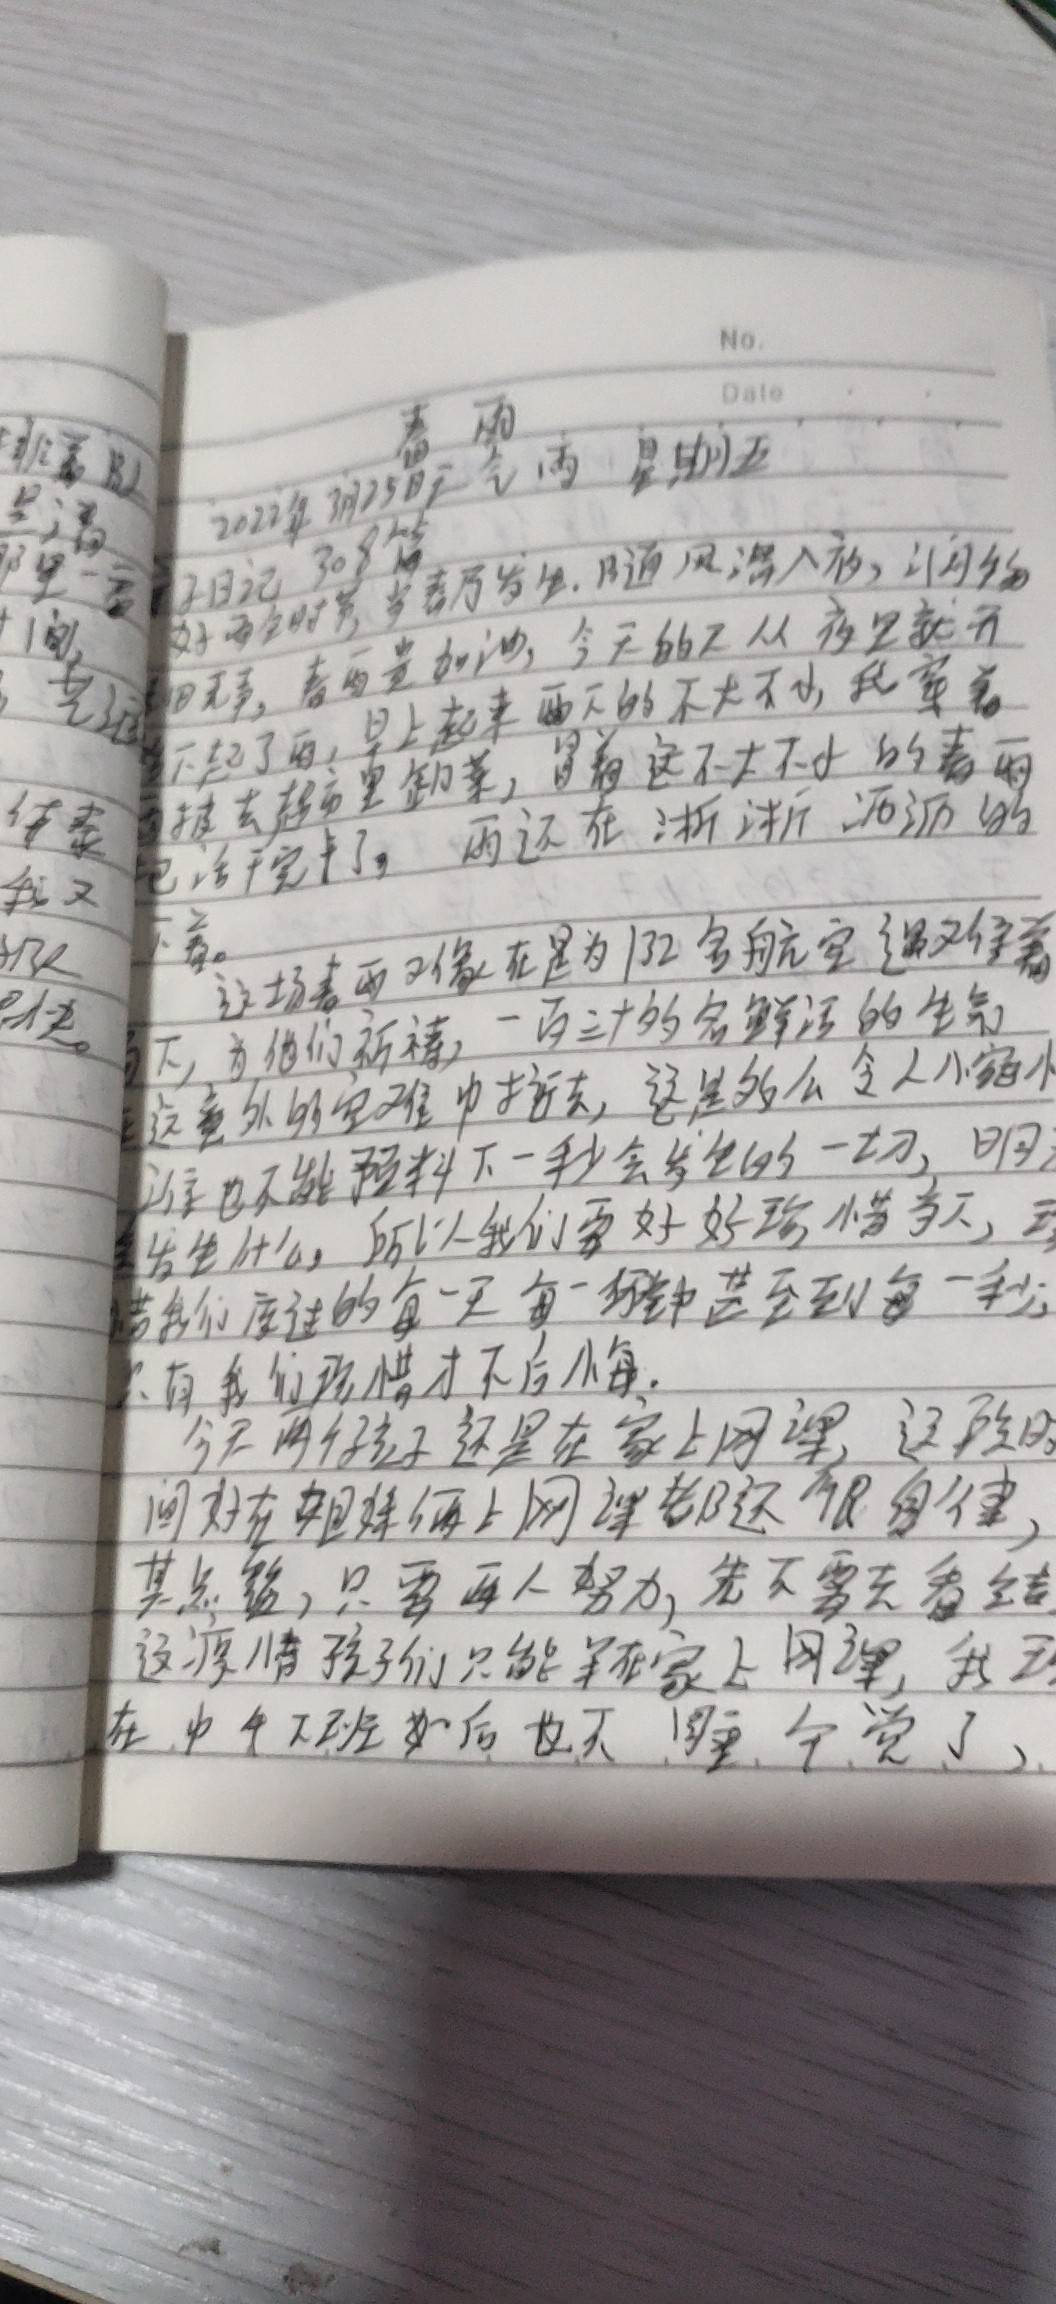 No.
Date
春雨
2022年3月25日天气雨 星期五
子日记 308篇
好雨知时节,当春乃发生.随风潜入夜,润物
细无声,春雨贵如油,今天的天从夜里就开
下起了雨,早上起来雨下的不大不小,我穿着
雨披去超市里卸菜,冒着这不大不小的春雨
把活干完卡了。雨还在淅淅沥沥的
下着。
这场春雨又像在是为132名航空遇难
而下,为他们祈祷,一百三十的名鲜活的生命
在这意外的空难中折去,这是多么令人心痛
谁也不能预料下一秒会发生的一切,明
发生什么。所以我们要好好珍惜当天,珍
惜我们度过的每一天每一分钟甚至到每一秒
只有我们珍惜才不后悔.
今天两个孩子还是在家上网课,这段时
间好在姐妹俩上网课都还很自律,
某点能,只要两人努力,先不要去看结
这疫情孩子们只能呆在家上网课,我现
在中午下班如后也不睡午觉了,
那里一
我又